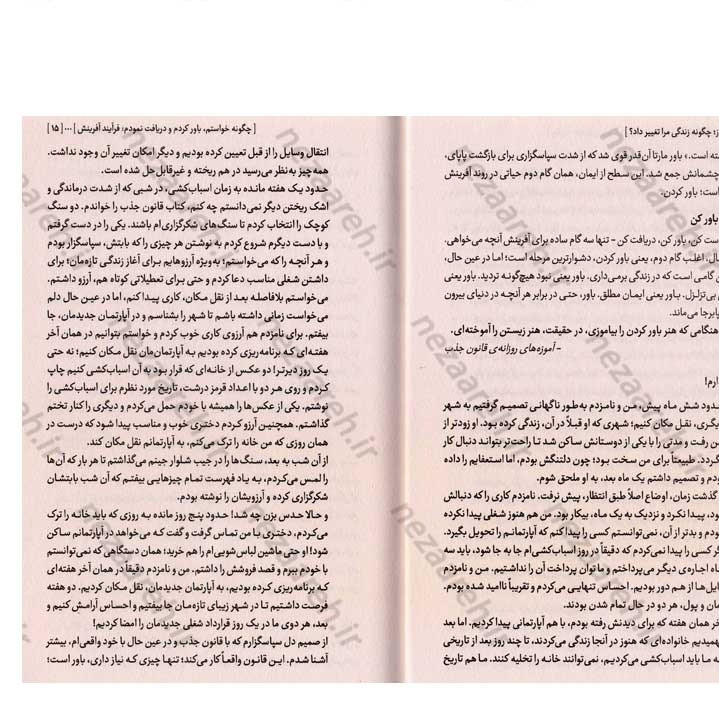 ز؛ چگونه زندگی مرا تغییر داد؟ ]
ته است.» باور مارتا آن‌قدر قوی شد که از شدت سپاسگزاری برای بازگشت پاپای،
چشمانش جمع شد. این سطح از ایمان، همان گام دوم حیاتی در روند آفرینش
است؛ باور کردن.
باور کن
ست کن، باور کن، دریافت کن - تنها سه گام ساده برای آفرینش آنچه می‌خواهی.
ال، اغلب گام دوم، یعنی باور کردن، دشوارترین مرحله است؛ اما در عین حال،
ن گامی است که در زندگی برمی‌داری. باور یعنی نبود هیچ‌گونه تردید. باور یعنی
بی‌تزلزل. باور یعنی ایمان مطلق. باور، حتی در برابر هر آنچه در دنیای بیرون
پابرجا می‌ماند.
هنگامی که هنر باور کردن را بیاموزی، در حقیقت، هنر زیستن را آموخته‌ای.
- آموزه‌های روزانه‌ی قانون جذب
ارم!
دود شش ماه پیش، من و نامزدم به‌طور ناگهانی تصمیم گرفتیم به شهر
یگری، نقل مکان کنیم؛ شهری که او قبلاً در آن، زندگی کرده بود. او زودتر از
ن رفت و مدتی را با یکی از دوستانش ساکن شد تا راحت‌تر بتواند دنبال کار
گردد. طبیعتاً برای من سخت بود؛ چون دلتنگش بودم، اما استعفایم را داده
ودم و تصمیم داشتم یک ماه بعد، به او ملحق شوم.
گذشت زمان، اوضاع اصلاً طبق انتظار، پیش نرفت. نامزدم کاری را که دنبالش
ود، پیدا نکرد و نزدیک به یک ماه، بیکار بود. من هم هنوز شغلی پیدا نکرده
ودم و بدتر از آن، نمی‌توانستم کسی را پیدا کنم که آپارتمانم را تحویل بگیرد.
گر کسی را پیدا نمی‌کردم که دقیقاً در روز اسباب‌کشی‌ام جا به جا شود، باید سه
اه اجاره‌ی دیگر می‌پرداختم و ما توان پرداخت آن را نداشتیم. من و نامزدم
ایل‌ها از هم دور بودیم. احساس تنهایی می‌کردم و تقریباً ناامید شده بودم.
مان و پول، هر دو در حال تمام شدن بودند.
خر همان هفته که برای دیدنش رفته بودم، با هم آپارتمانی پیدا کردیم. اما بعد
همیدیم خانواده‌ای که هنوز در آنجا زندگی می‌کردند، تا چند روز بعد از تاریخی
ه ما باید اسباب‌کشی می‌کردیم، نمی‌توانند خانه را تخلیه کنند. ما هم تاریخ
[ چگونه خواستم، باور کردم و دریافت نمودم؛ فرآیند آفرینش ] ... [ ۱۵ ]
انتقال وسایل را از قبل تعیین کرده بودیم و دیگر امکان تغییر آن وجود نداشت.
همه‌چیز به‌نظر می‌رسید در هم ریخته و غیرقابل‌حل شده است.
حدود یک هفته مانده به زمان اسباب‌کشی، در شبی که از شدت درماندگی و
اشک ریختن دیگر نمی‌دانستم چه کنم، کتاب قانون جذب را خواندم. دو سنگ
کوچک را انتخاب کردم تا سنگ‌های شکرگزاری‌ام باشند. یکی را در دست گرفتم
و با دست دیگرم شروع کردم به نوشتن هر چیزی را که بابتش، سپاسگزار بودم
و هر آنچه را که می‌خواستم؛ به‌ویژه آرزوهایم برای آغاز زندگی تازه‌مان؛ برای
داشتن شغلی مناسب دعا کردم و حتی برای تعطیلاتی کوتاه هم، آرزو داشتم.
می‌خواستم بلافاصله بعد از نقل مکان، کاری پیدا کنم، اما در عین حال دلم
می‌خواست زمانی داشته باشم تا شهر را بشناسم و در آپارتمان جدیدمان، جا
بیفتم. برای نامزدم هم آرزوی کاری خوب کردم و خواستم بتوانیم در همان آخر
هفته‌ای که برنامه‌ریزی کرده بودیم به آپارتمان‌مان نقل مکان کنیم؛ نه حتی
یک روز دیرتر! دو عکس از خانه‌ای که قرار بود به آن اسباب‌کشی کنیم چاپ
کردم و روی هر دو با اعداد قرمز درشت، تاریخ مورد نظرم برای اسباب‌کشی را
نوشتم. یکی از عکس‌ها را همیشه با خودم حمل می‌کردم و دیگری را کنار تختم
گذاشتم. همچنین آرزو کردم دختری خوب و مناسب پیدا شود که درست در
همان روزی که من خانه را ترک می‌کنم، به آپارتمانم نقل مکان کند.
از آن شب به بعد، سنگ‌ها را در جیب شلوار جینم می‌گذاشتم تا هر بار که آن‌ها
را لمس می‌کردم، به یاد فهرست تمام چیزهایی بیفتم که آن شب بابتشان
شکرگزاری کرده و آرزویشان را نوشته بودم.
و حالا حدس بزن چه شد! حدود پنج روز مانده به روزی که باید خانه را ترک
می‌کردم، دختری با من تماس گرفت و گفت که می‌خواهد در آپارتمانم ساکن
شود! او حتی ماشین لباس‌شویی‌ام را هم خرید؛ همان دستگاهی که نمی‌توانستم
با خودم ببرم و قصد فروشش را داشتم. من و نامزدم دقیقاً در همان آخر هفته‌ای
که برنامه‌ریزی کرده بودیم، به آپارتمان جدیدمان، نقل مکان کردیم. دو هفته
فرصت داشتیم تا در شهر زیبای تازه‌مان جا بیفتیم و احساس آرامش کنیم و
بعد، هر دوی ما در یک روز قرارداد شغلی جدیدمان را امضا کردیم!
از صمیم دل سپاسگزارم که با قانون جذب و در عین حال با خود واقعی‌ام، بیشتر
آشنا شدم. این قانون واقعاً کار می‌کند؛ تنها چیزی که نیاز داری، باور است؛
nezaareh.ir